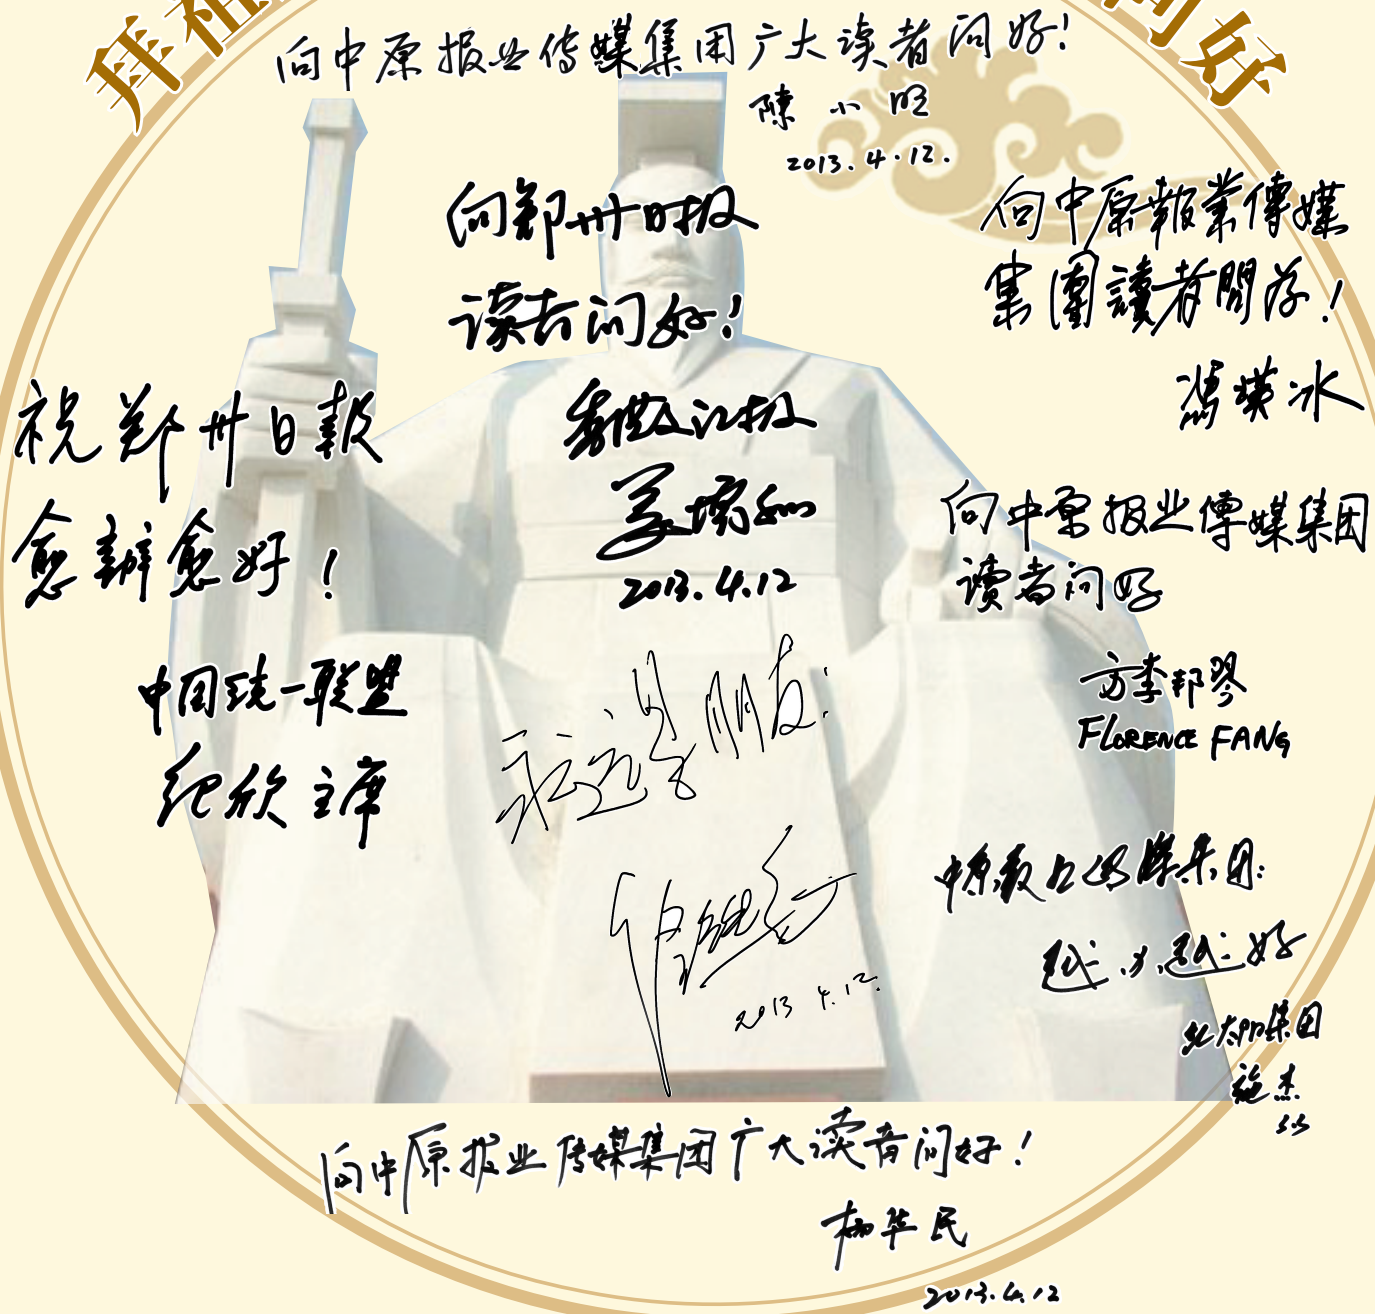 拜祖
问好
向中原报业传媒集团广大读者问好!
陳小旺
2013.4.12.
向郑州日报
读者问好!
2013.4.12
向中原報業傳媒
集團讀者問好!
馮瑛冰
祝郑州日報
愈辦愈好!
中国统一联盟
纪欣主席
向中原报业傳媒集团
讀者问好
方李邦琴
FLORENCE FANG
永远是朋友!
2013 4.12.
中原报业传媒集团:
越办越好
施杰
向中原报业传媒集团广大读者问好!
杨华民
2013.4.12